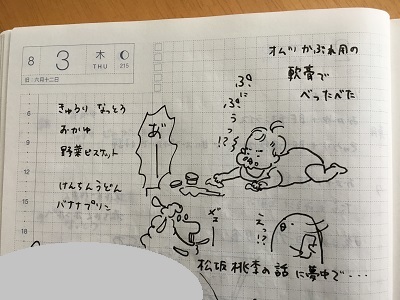 8 3 木 THU 215
旧:六月十二日
きゅうり なっとう
おかゆ
野菜ビスケット
けんちんうどん
バナナプリン
オムツかぶれ用の
軟膏で
べったべた
ぷに
ぷに
うっ!?
お"ーー
えっ!?
松坂桃李の話に夢中で・・・
9
12
15
18